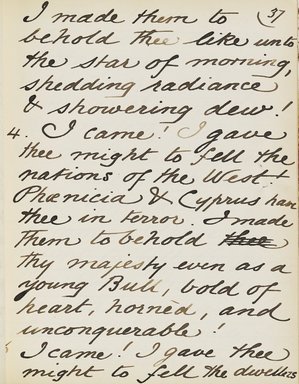 37
I made them to
behold thee like unto
the star of morning,
shedding radiance
& showering dew!
4. I came! I gave
thee might to fell the
nations of the West!
Phœnicia & Cyprus have
thee in terror. I made
them to behold thee
thy majesty even as a
young Bull, bold of
heart, hornèd, and
unconquerable!
5 I came! I gave thee
might to fell the dwellers